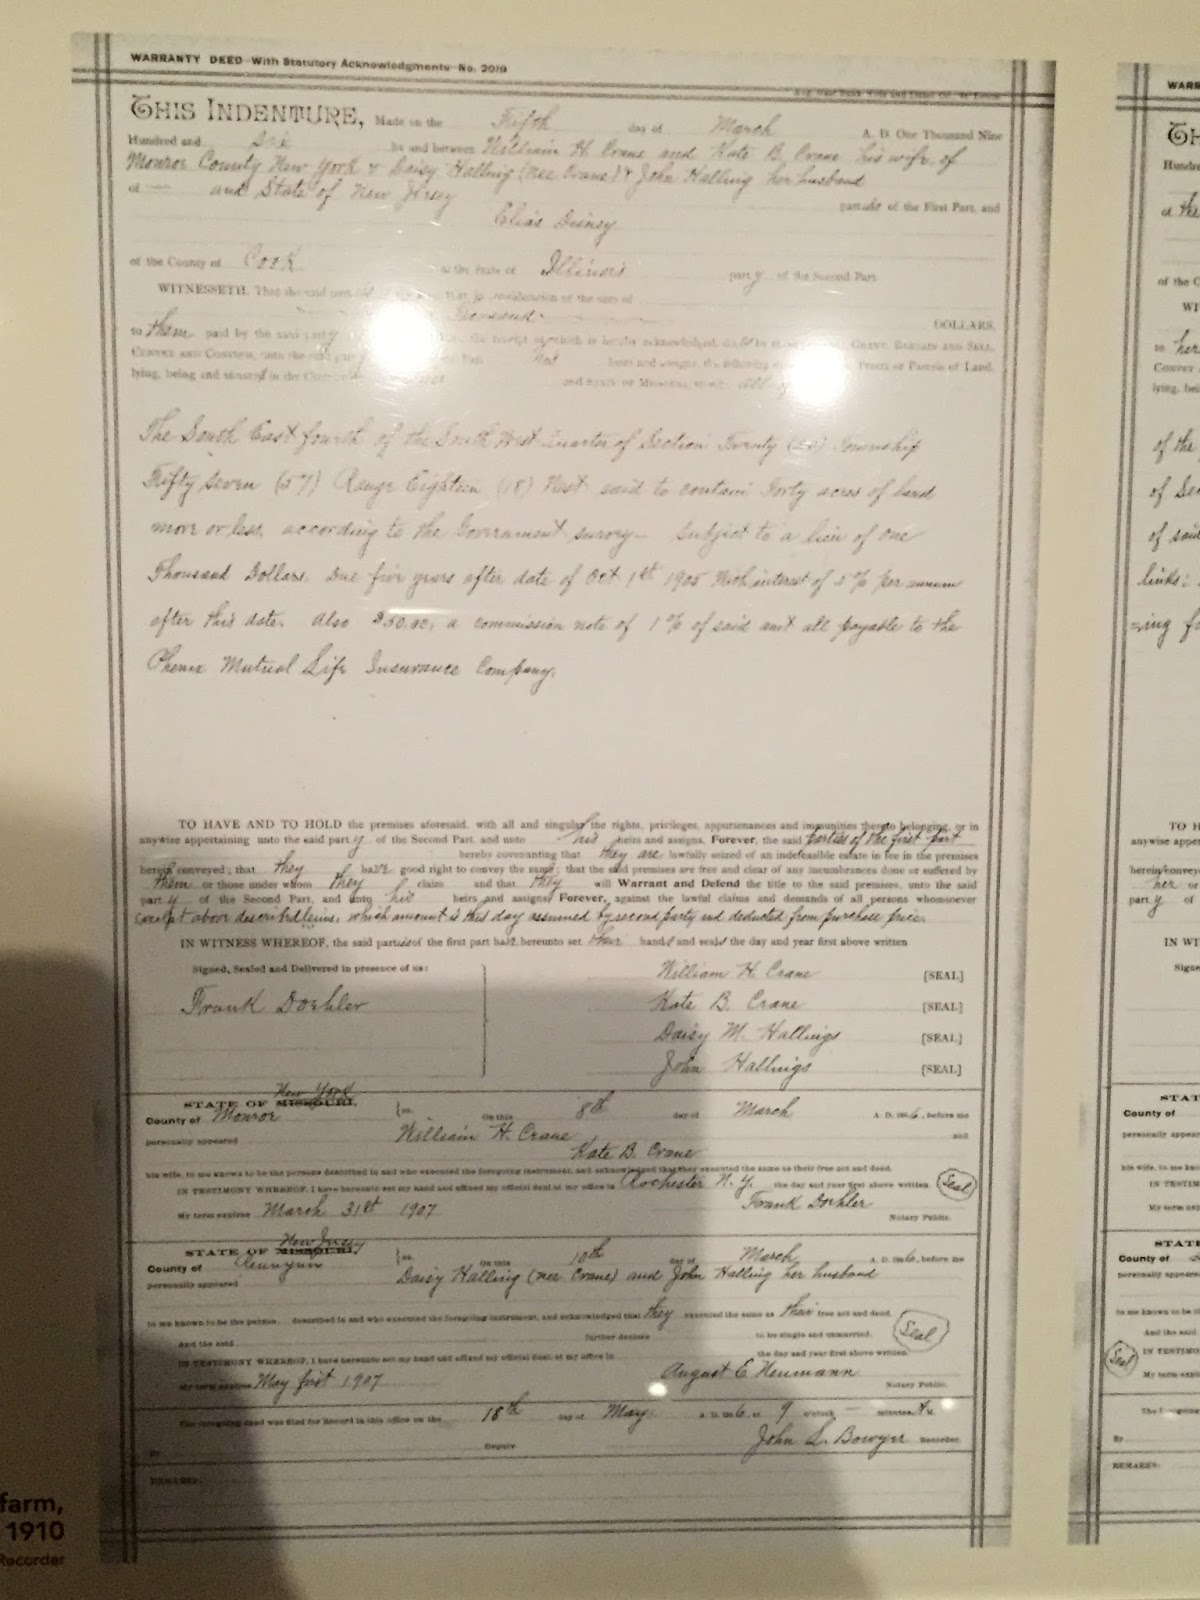 WARRANTY DEED—With Statutory Acknowledgments—No. 2019
THIS INDENTURE, Made on the Fifth day of March A. D. One Thousand Nine
Hundred and Six by and between William H. Crane and Kate B. Crane his wife of
Monroe County New York & Daisy Halling (nee Crane) & John Halling her husband
of — and State of New Jersey parties of the First Part, and
Elias Disney
of the County of Cook in the State of Illinois party of the Second Part.
WITNESSETH, That the said consideration of the sum of
Thousand DOLLARS,
to them paid by the said the receipt of which is hereby acknowledged, do GRANT, BARGAIN AND SELL,
CONVEY AND CONFIRM, unto the said heirs and assigns, the following Tracts or Parcels of Land,
lying, being and situated in the and STATE OF MISSOURI, to-wit: All of
The South East fourth of the South West Quarter of Section Twenty (20) Township
Fifty seven (57) Range Eighteen (18) West said to contain Forty acres of land
more or less, according to the Government survey— Subject to a lien of One
Thousand Dollars. Due five years after date of Oct 1st 1905 With interest of 5% per annum
after this date. Also $50.00, a commission note of 1% of said amt all payable to the
Phenix Mutual Life Insurance Company.
TO HAVE AND TO HOLD the premises aforesaid, with all and singular the rights, privileges, appurtenances and immunities thereto belonging, or in
anywise appertaining unto the said party of the Second Part and unto his heirs and assigns, Forever, the said parties of the first part
hereby covenanting that they are lawfully seized of an indefeasible estate in fee in the premises
herein conveyed; that they have good right to convey the same; that the said premises are free and clear of any incumbrances done or suffered by
them or those under whom they claim and that they will Warrant and Defend the title to the said premises, unto the said
party of the Second Part, and unto his heirs and assigns, Forever, against the lawful claims and demands of all persons whomsoever
except above described liens, which amount is this day assumed by second party and deducted from purchase price.
IN WITNESS WHEREOF, the said parties of the first part have hereunto set their hands and seals the day and year first above written
Signed, Sealed and Delivered in presence of us: William H. Crane [SEAL]
Frank Doehler Kate B. Crane [SEAL]
Daisy M. Hallings [SEAL]
John Hallings [SEAL]
New York
STATE OF MISSOURI,
County of Monroe ss. On this 8th day of March A. D. 1906, before me
personally appeared William H. Crane and
Kate B. Crane
his wife, to me known to be the persons described in and who executed the foregoing instrument, and acknowledged that they executed the same as their free act and deed.
IN TESTIMONY WHEREOF, I have hereunto set my hand and affixed my official Seal at my office in Rochester N. Y. the day and year first above written. Seal
My term expires March 31st 1907 Frank Doehler
Notary Public.
New Jersey
STATE OF MISSOURI,
County of ss. On this 10th day of March A. D. 1906, before me
personally appeared Daisy Halling (nee Crane) and John Halling her husband
to me known to be the persons described in and who executed the foregoing instrument, and acknowledged that they executed the same as their free act and deed.
And the said further declares to be single and unmarried. Seal
IN TESTIMONY WHEREOF, I have hereunto set my hand and affixed my official Seal at my office in the day and year first above written.
My term expires May first 1907 August E Neumann
Notary Public.
The foregoing deed was filed for Record in this office on the 18th day of May A. D. 1906, at 9 o'clock — minutes A M.
By Deputy John L. Bowyer Recorder.
REMARKS:
farm,
1910
Recorder
WARR
Hundred
of the
of the C
WI
to her
Convey
lying, bei
of the
of Sec
of said
links:
TO H
anywise apper
herein conveye
her or
party of
IN WI
Signe
STAT
County of
personally appear
his wife, to me known
IN TESTIM
My term expi
STATE
County of
personally appeare
to me known to be th
And the said
Seal IN TESTIMO
My term ex
By
REMARKS: